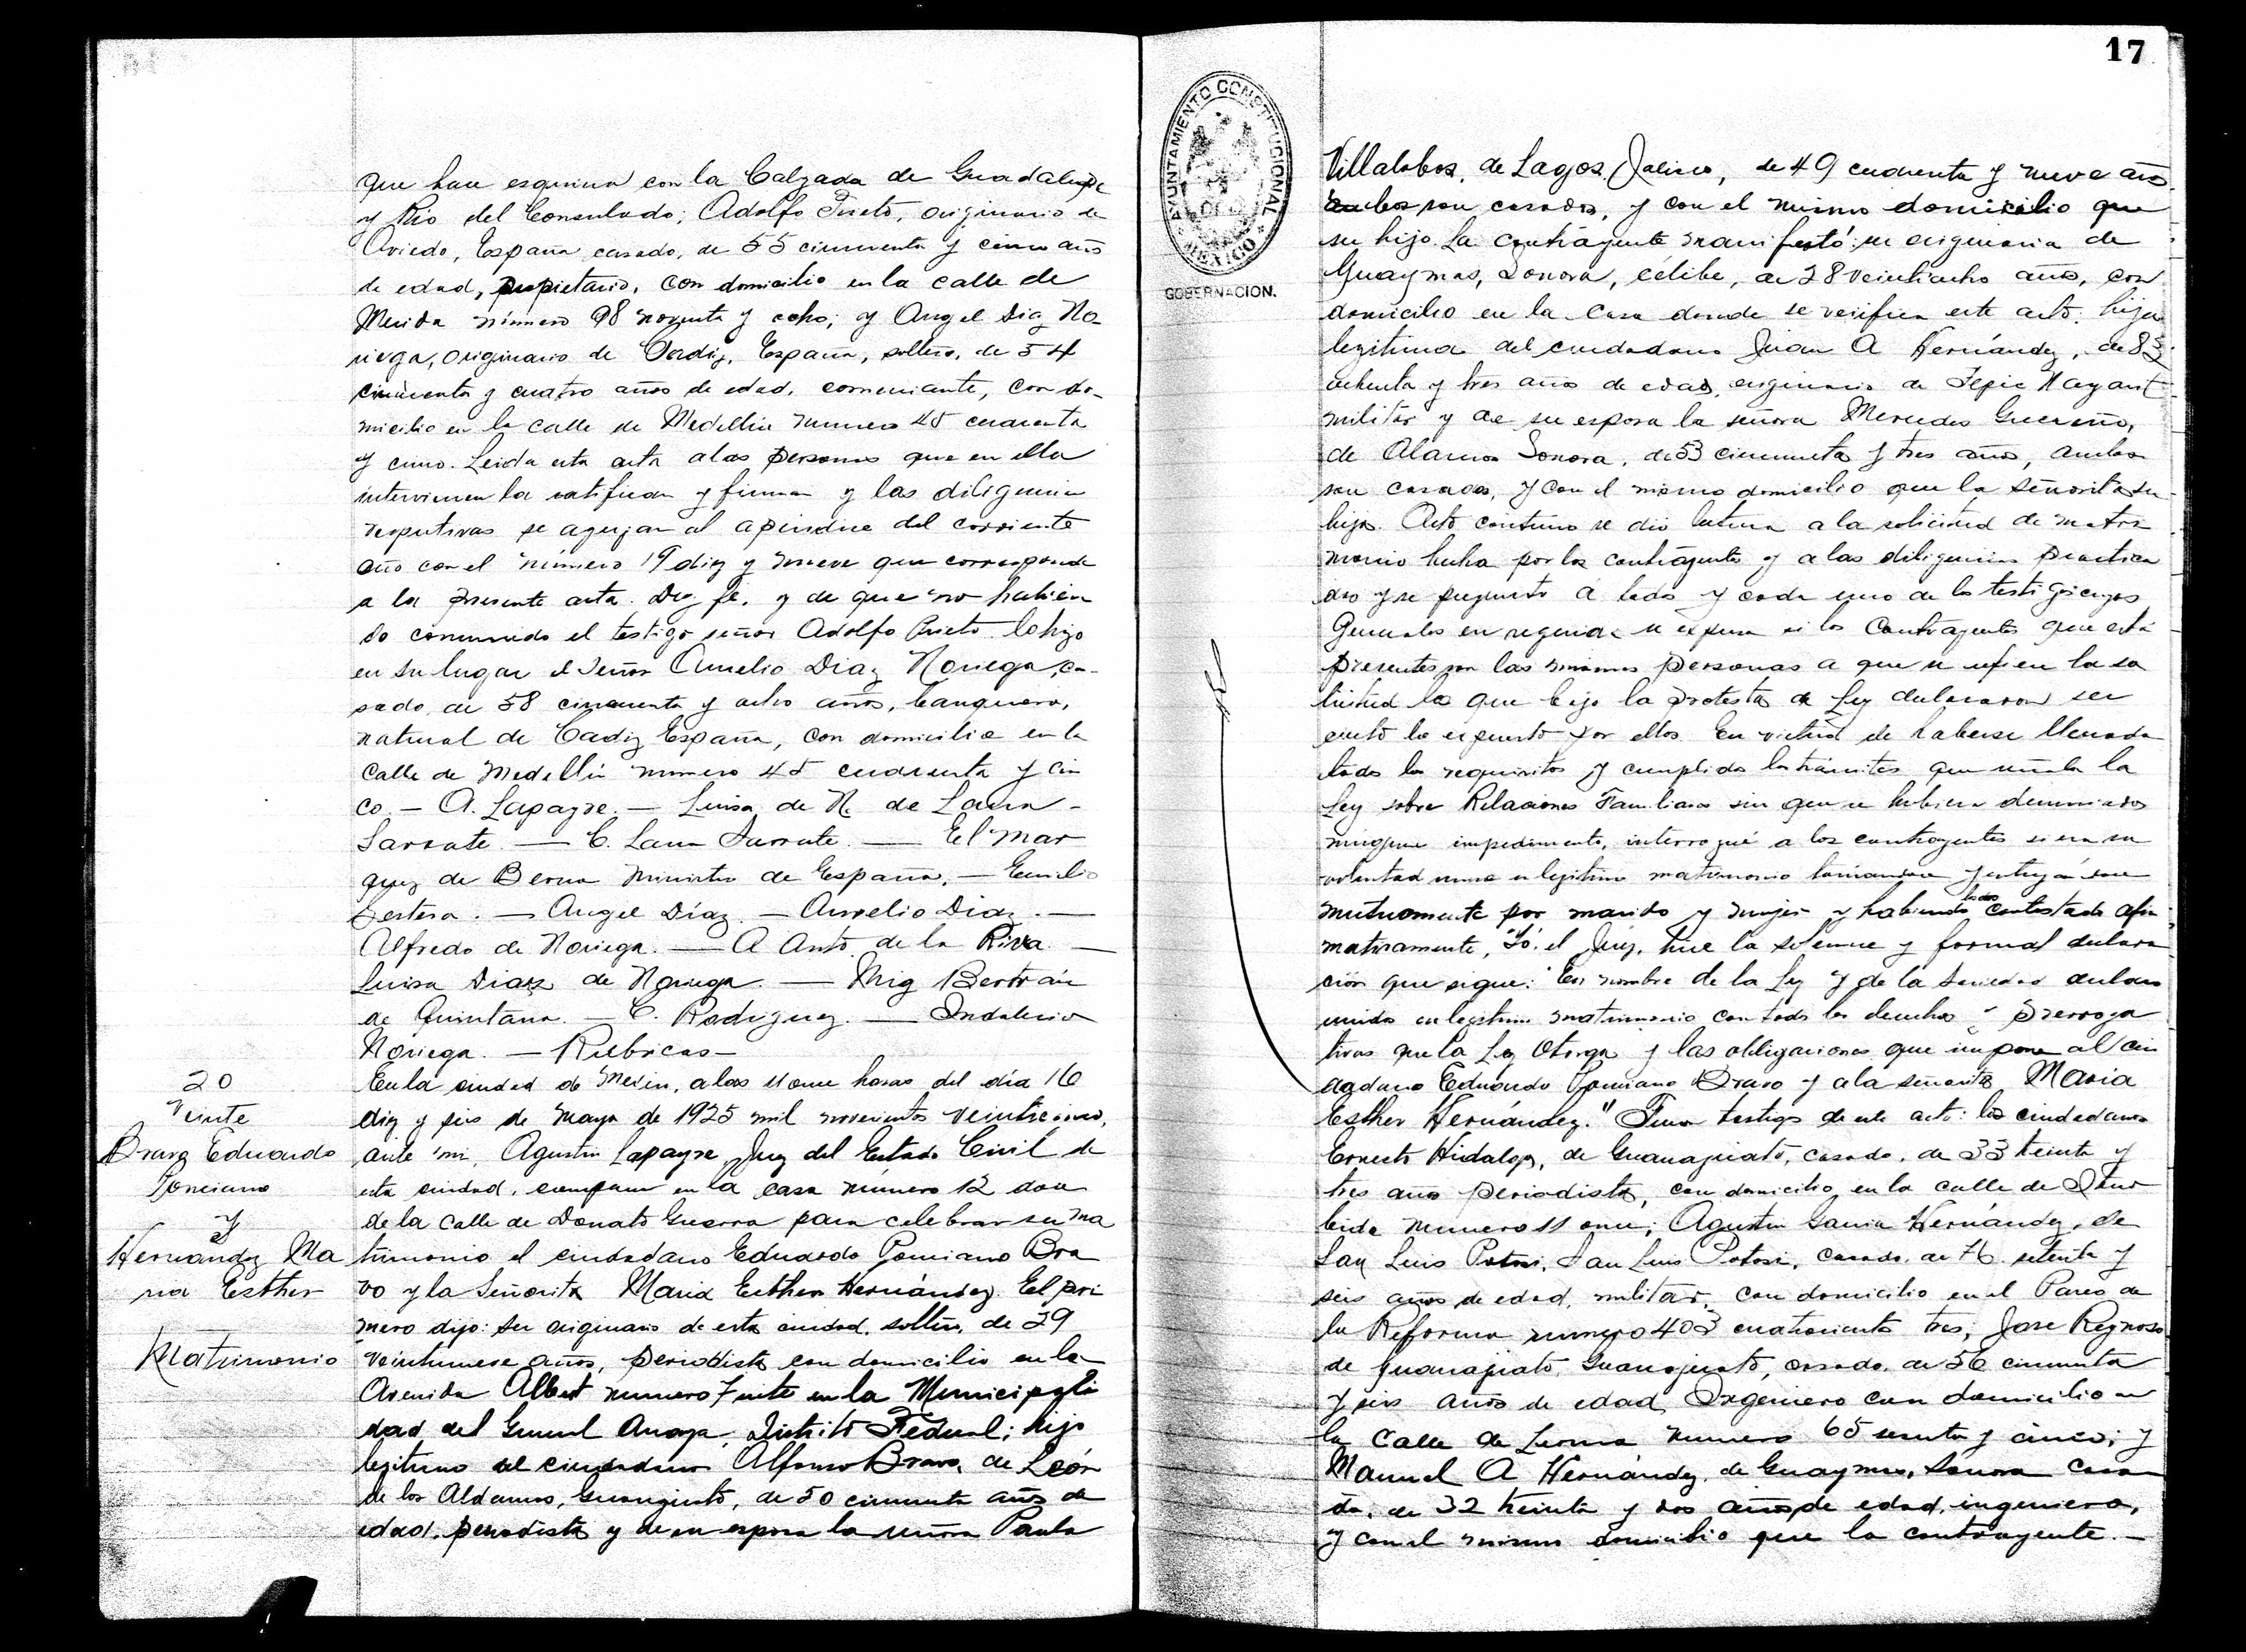 que hace esquina con la Calzada de Guadalupe
y Rio del Consulado; Adolfo Prieto, originario de
Oviedo, España, casado, de 55 cincuenta y cinco años
de edad, propietario, con domicilio en la calle de
Merida número 98 noventa y ocho; y Angel Diaz No-
riega, originario de Cadiz, España, soltero, de 54
cincuenta y cuatro años de edad, comerciante, con do-
micilio en la calle de Medellin numero 45 cuarenta
y cinco. Leida esta acta a las personas que en ella
intervienen la ratifican y firman y las diligencias
respectivas se agregan al apendice del corriente
año con el número 19 diez y nueve que corresponde
a la presente acta. Doy fe, y de que no habien
do concurrido el testigo señor Adolfo Prieto lo hizo
en su lugar el Señor Aurelio Diaz Noriega, ca-
sado, de 58 cincuenta y ocho años, banquero,
natural de Cadiz España, con domicilio en la
calle de Medellin numero 45 cuarenta y cin
co. — A. Lapayre. — Luisa de N. de Laura-
Sarrate. — C. Laun Sarrate. — El Mar
quez de Berna Ministro de España. — Emilio
— Angel Díaz. — Aurelio Diaz. —
Alfredo de Noriega. — A Anto. de la Riva. —
Luisa Diaz de Noriega. — Mig Bertrán
de Quintana. — C. Rodriguez. — Indalecio
Noriega. — Rubricas —
20
Veinte
Bravo Eduardo
Ponciano
y
Hernández Ma
ria Esther
Matrimonio
En la ciudad de Mexico, a las 11 once horas del día 16
diez y seis de Mayo de 1925 mil novecientos veinticinco,
ante mi, Agustin Lapayre, Juez del Estado Civil de
esta ciudad, comparecen en la casa número 12 doce
de la calle de Donato Guerra para celebrar su ma
trimonio el ciudadano Eduardo Ponciano Bra
vo y la Señorita Maria Esther Hernández. El pri
mero dijo: ser originario de esta ciudad, soltero, de 29
veintinueve años, periodista con domicilio en la
Avenida Albert numero 7 siete en la Municipali
dad del General Anaya, Distrito Federal; hijo
legitimo del ciudadano Alfonso Bravo, de León
de los Aldamas, Guanajuato, de 50 cincuenta años de
edad, periodista y de su esposa la señora Paula
17
AYUNTAMIENTO CONSTITUCIONAL
MEXICO
GOBERNACION.
Villalobos, de Lagos, Jalisco, de 49 cuarenta y nueve años
son casados, y con el mismo domicilio que
su hijo. La contrayente manifestó: ser originaria de
Guaymas, Sonora, célibe, de 28 veintiocho años, con
domicilio en la casa donde se verifica este acto, hija
legitima del ciudadano Juan A Hernández, de 83
ochenta y tres años de edad, originario de Tepic Nayarit
militar y de su esposa la señora Mercedes Guereño,
de Alamos Sonora, de 53 cincuenta y tres años, ambos
son casados, y con el mismo domicilio que la señorita su
hija. Acto continuo se dio lectura a la solicitud de matri
monio hecha por los contrayentes y a las diligencias practica
das y se preguntó á todos y cada uno de los testigos cuyos
generales en seguida se expresan si los contrayentes que están
presentes son las mismas personas a que se refiere la so
licitud los que bajo la protesta de Ley declararon ser
cierto lo expuesto por ellos. En virtud de haberse llenado
todos los requisitos y cumplido los trámites que señala la
Ley sobre Relaciones Familiares sin que se hubiera denunciado
ningun impedimento, interrogué a los contrayentes si era su
voluntad unirse en legitimo matrimonio tomandose y entregándose
mutuamente por marido y mujer y habiendo todos contestado afir
mativamente, Yó, el Juez, hice la solemne y formal declara
ción que sigue: "En nombre de la Ley y de la Sociedad declaro
unidos en legitimo matrimonio con todos los derechos y prerroga
tivas que la Ley otorga y las obligaciones que impone al ciu
dadano Eduardo Ponciano Bravo y a la señorita Maria
Esther Hernández." Fueron testigos de este acto: los ciudadanos
Ernesto Hidalgo, de Guanajuato, casado, de 33 treinta y
tres años periodista, con domicilio en la calle de Itur
bide numero 11 once; Agustin Garcia Hernández, de
San Luis Potosi, San Luis Potosi, casado, de 76 setenta y
seis años de edad, militar, con domicilio en el Paseo de
la Reforma numero 403 cuatrocientos tres; Jose Reynoso
de Guanajuato, Guanajuato, casado, de 56 cincuenta
y seis años de edad, Ingeniero con domicilio en
la Calle de Lerma numero 65 sesenta y cinco; y
Manuel A Hernández, de Guaymas, Sonora casa
do, de 32 treinta y dos años de edad, ingeniero,
y con el mismo domicilio que la contrayente. —